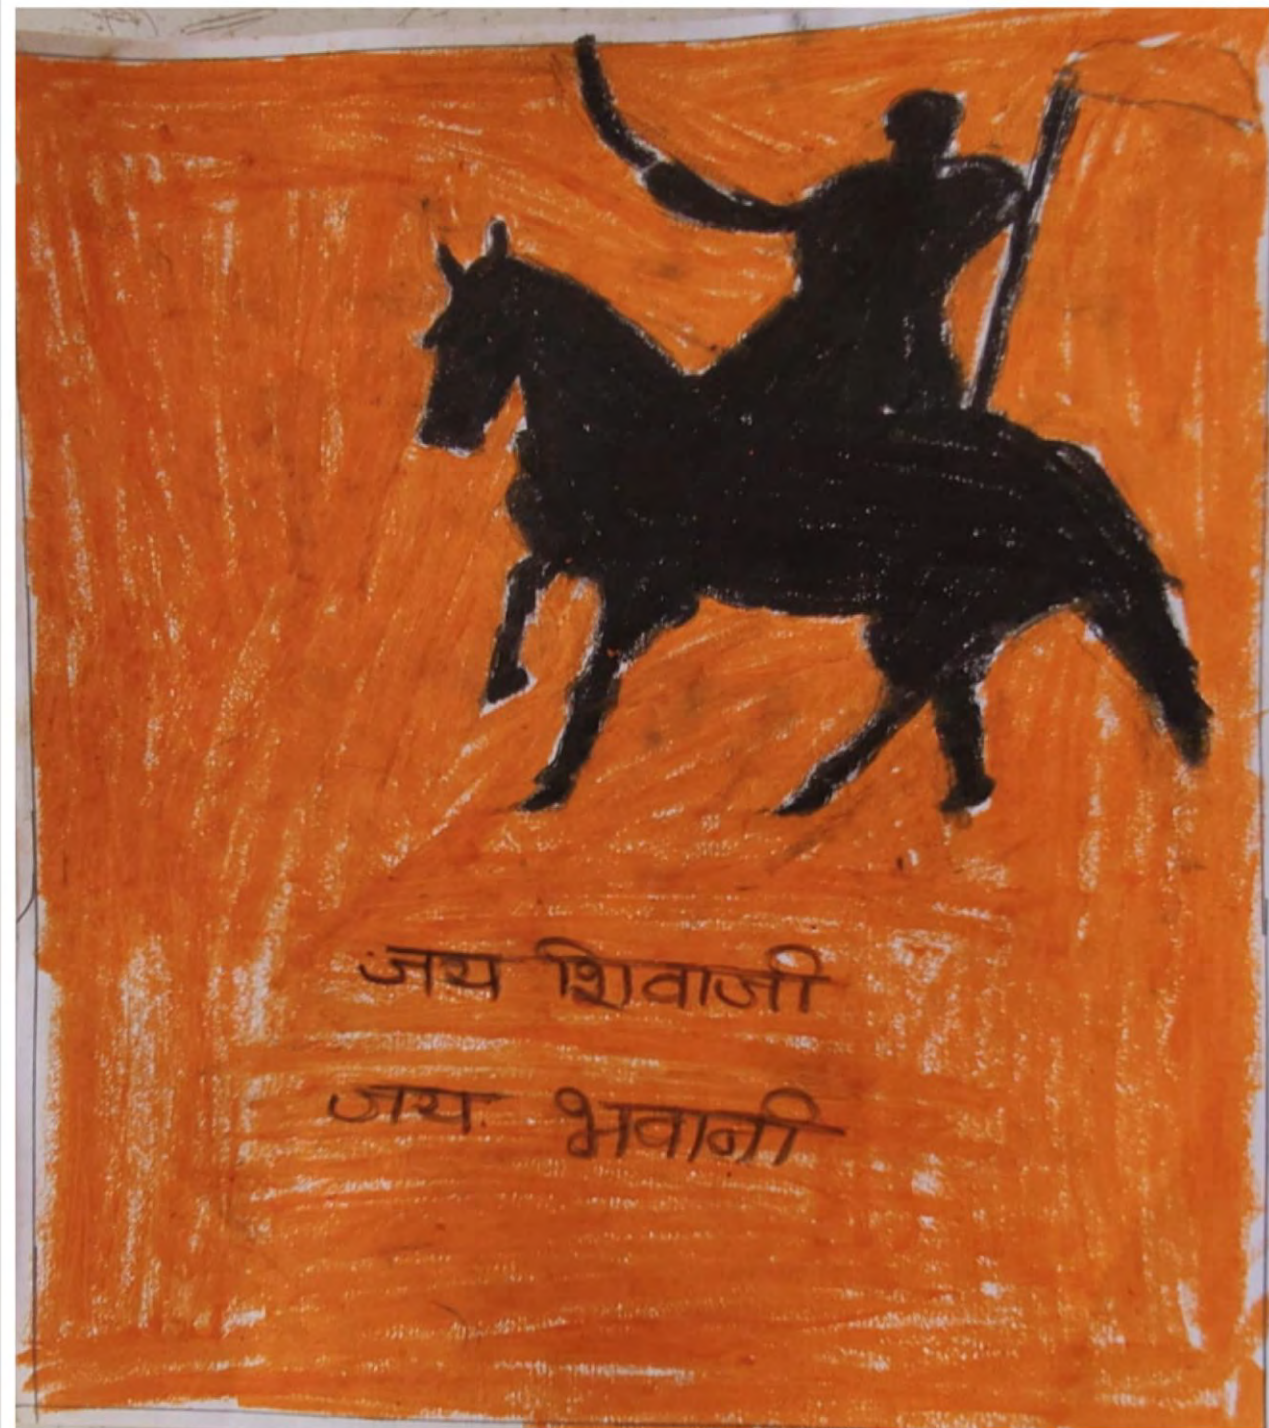 जय शिवाजी
जय भवानी